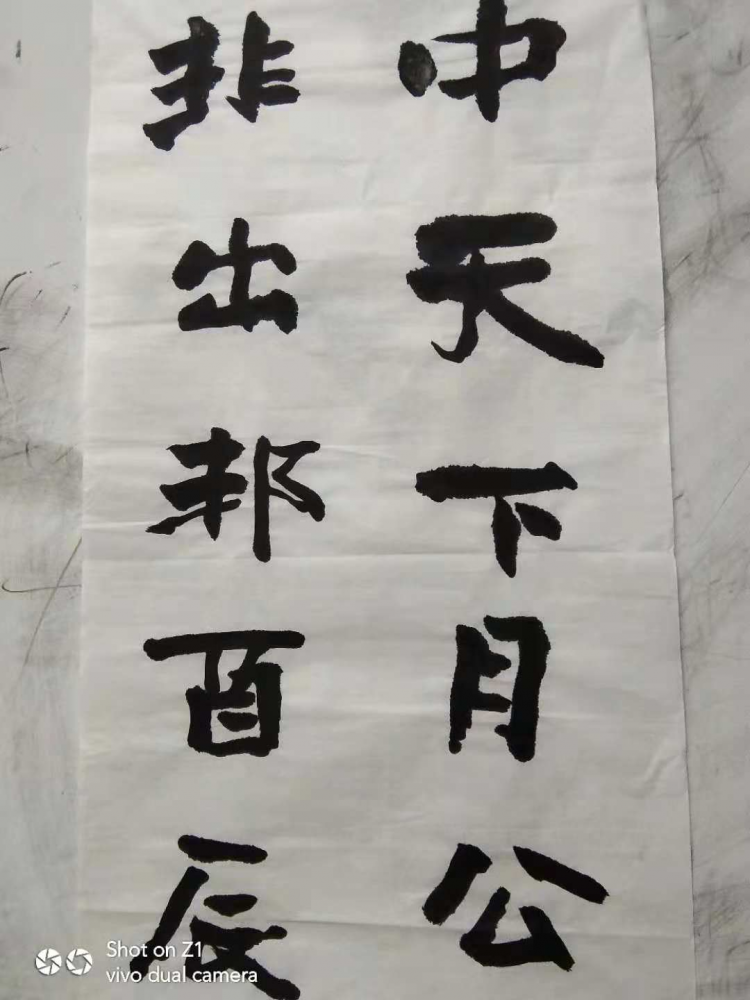 中天下月公
非出邦百辰
Shot on Z1
vivo dual camera